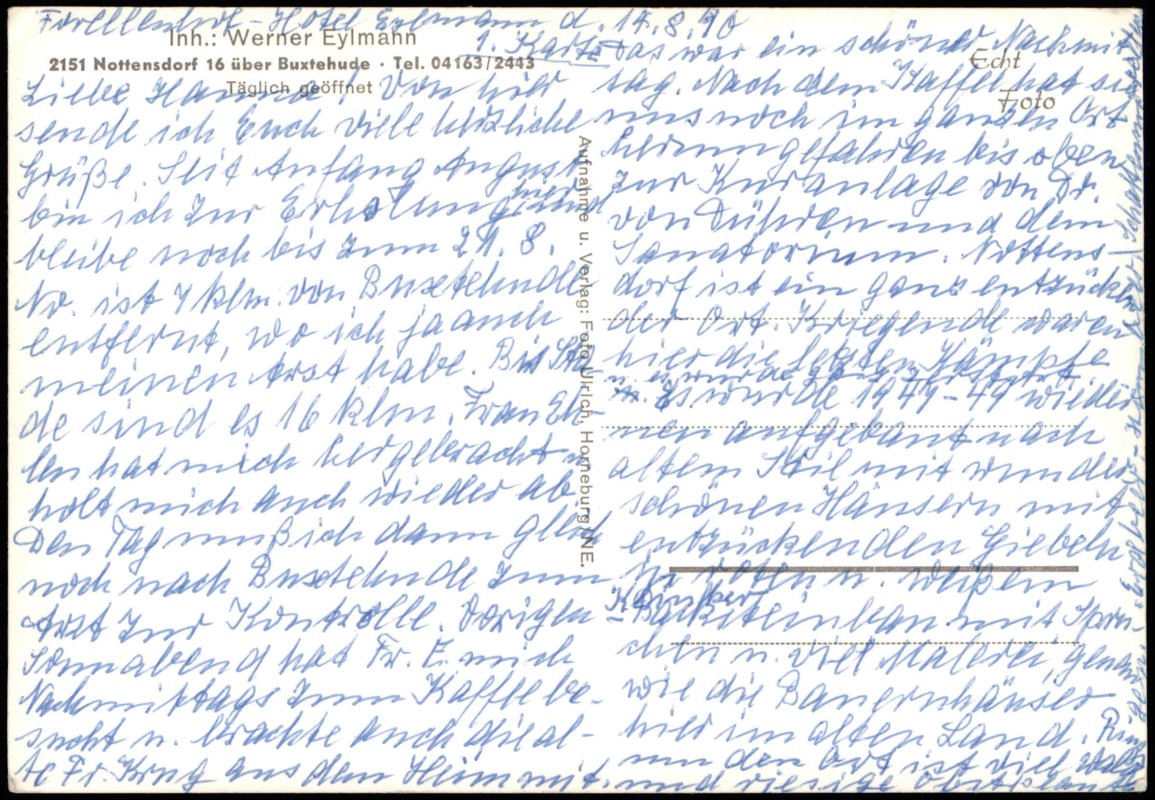 Forellenhof - Hotel Eylmann d. 14.8.90
Inh.: Werner Eylmann
2151 Nottensdorf 16 über Buxtehude · Tel. 04163/2443
Täglich geöffnet
1. Karte
Liebe Hanna! Von hier
sende ich Euch viele herzliche
Grüße. Seit Anfang August
bin ich zur Erholung hier und
bleibe noch bis zum 21. 8.
No. ist 7 klm. von Buxtehude
entfernt, wo ich ja auch
meinen Arzt habe. Bis Sta-
de sind es 16 klm. Frau Eh-
len hat mich hergebracht u.
holt mich auch wieder ab.
Den Tag muß ich dann gleich
noch nach Buxtehude zum
Arzt zur Kontrolle. Vorigen
Sonnabend hat Fr. E. mich
Nachmittags zum Kaffee be-
sucht u. brachte auch die al-
te Fr. Krug aus dem Heim mit.
Aufnahme u. Verlag: Foto Ulrich, Horneburg/NE.
Echt
Foto
Das war ein schöner Nachmit-
tag. Nach dem Kaffee hat sie
uns noch im ganzen Ort
herumgefahren bis oben
zur Kuranlage von Dr.
von Dühren und dem
Sanatorium. Nottens-
dorf ist ein ganz entzücken-
der Ort. Kriegende waren
hier die letzten Kämpfe
Es wurde 1947-49 wieder
neu aufgebaut nach
altem Stil mit wunder
schönen Häusern mit
entzückenden Giebeln
in roten u. weißem
Klinker
Backsteinbau mit Sprü-
chen u. viel Malerei, genau
wie die Bauernhäuser
hier im alten Land. Rings
um den Ort ist viel Wald
und riesige Obstplanta